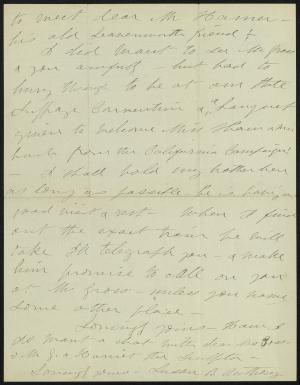 to meet dear Mr Hamer -
his old Leavenworth friend &
I did want to see Mr Gross
& you awfully - but had to
hurry through to be at our State
Suffrage Convention & banquet
given to welcome Miss Shaw & me
back from the California Campaign
- I shall hold my brother here
as long as possible he is having
good visit & rest - When I find
out the exact train he will
take I'll telegraph you - & make
him promise to call on you
at Mr Gross - unless you name
some other place -
Lovingly yours -
do want a chat with dear Mrs Gross
& Mr G. & Harriet the Sculptor -
Lovingly yours - Susan B. Anthony